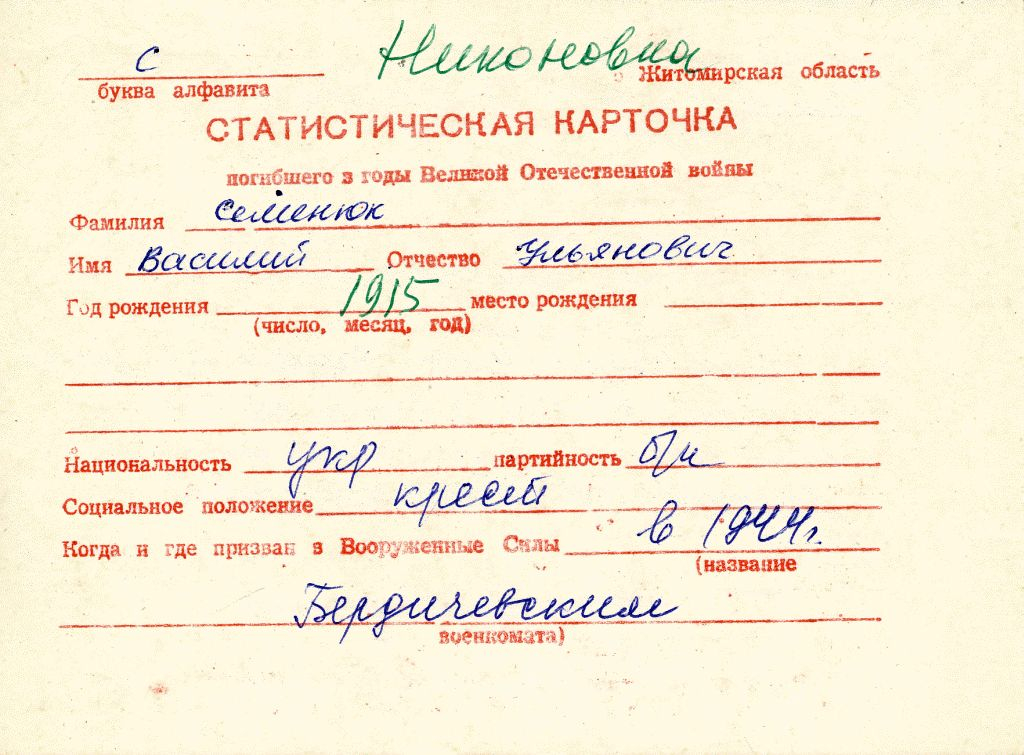 С Никоновка Житомирская область
буква алфавита
СТАТИСТИЧЕСКАЯ КАРТОЧКА
погибшего в годы Великой Отечественной войны
Фамилия Семенюк
Имя Василий Отчество Ульянович
Год рождения 1915 место рождения
(число, месяц, год)
Национальность укр партийность б/п
Социальное положение крест
Когда и где призван в Вооруженные Силы в 1944г.
(название
Бердичевским
военкомата)